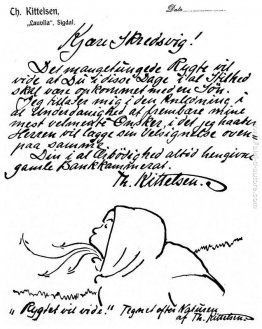 Th. Kittelsen,
"Lauvlia", Sigdal.
Dato
Kjære Skredsvig!
Det mangetungede Rygte vil
vide at Du i disse Dage i al Stilhed
skal være opkommet med en Søn.
Jeg tillater mig i den Anledning i
al Underdanighed at frembære mine
mest velmente Ønsker, i det jeg haaber
Herren vil lægge sin Velsignelse oven
paa samme.
Din i al Ærbødighed altid hengivne
gamle Bænkkammerat.
Th. Kittelsen.
"Rygtet vil vide." Tegnet efter Naturen
af Th. Kittelsen.